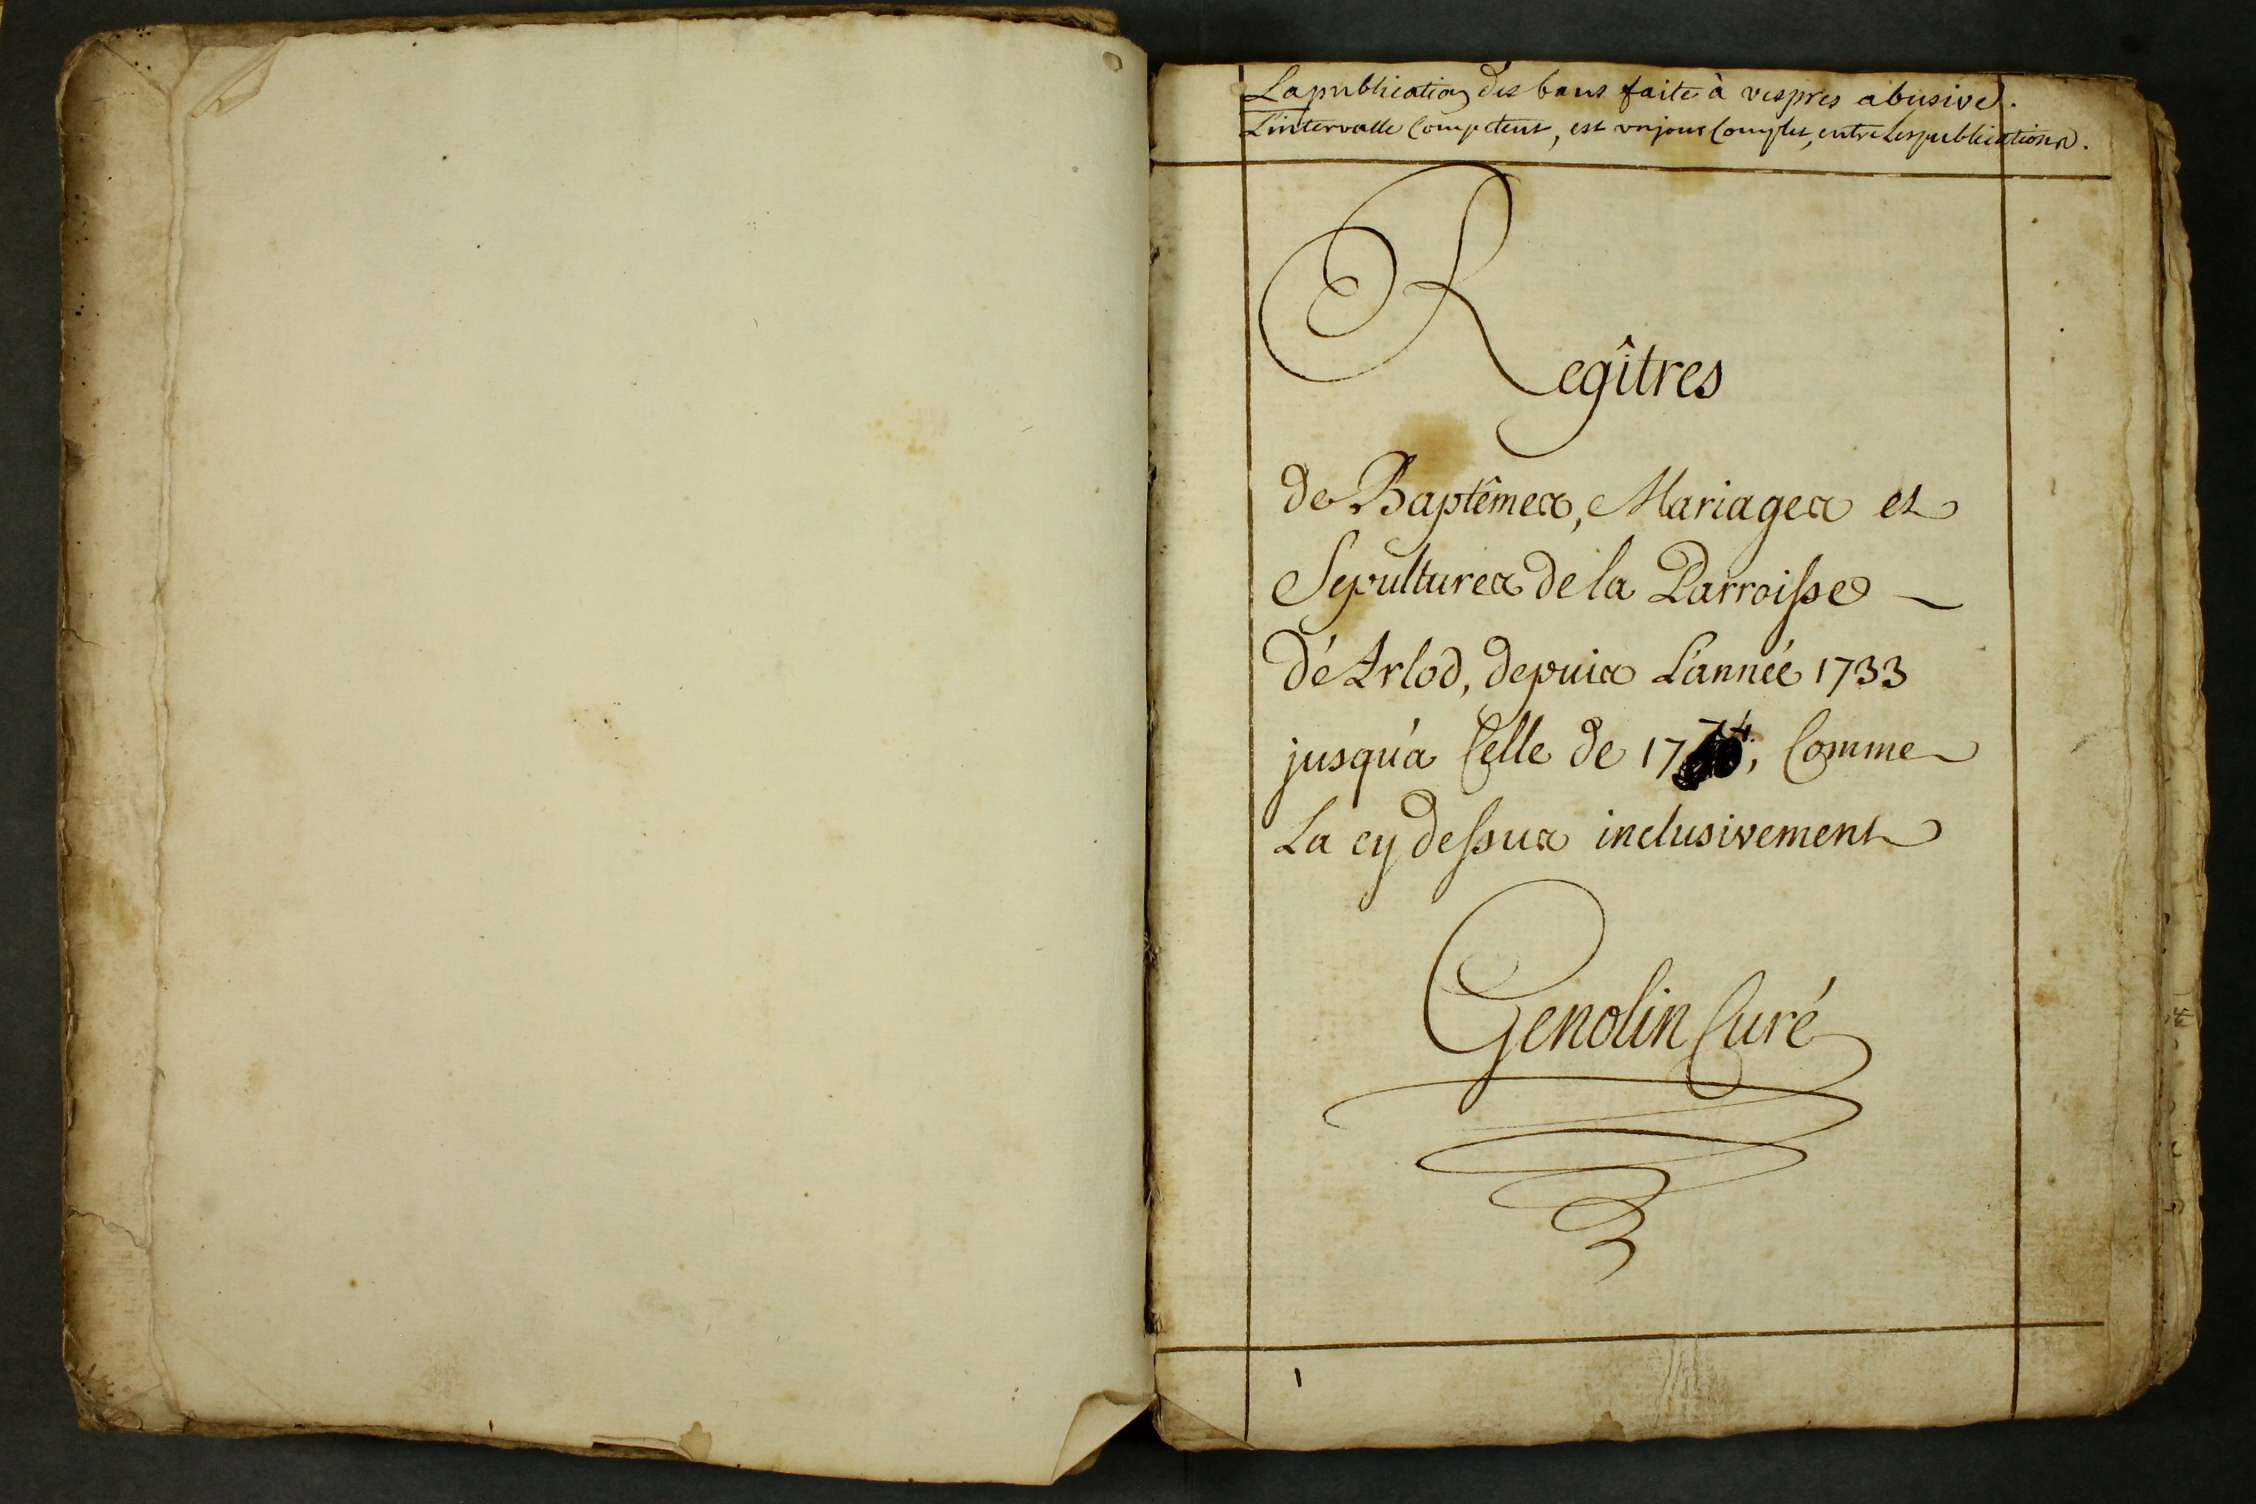 La publication des bans faite à vespres abusive.
L'intervalle Competent, est un jour Complet, entre Les publications.
Regîtres
de Baptêmes, Mariages et
Sepultures de la Parroisse
d'Arlod, depuis L'année 1733
jusqu'a Celle de 1774, Comme
La cy dessus inclusivement
Genolin Curé
1